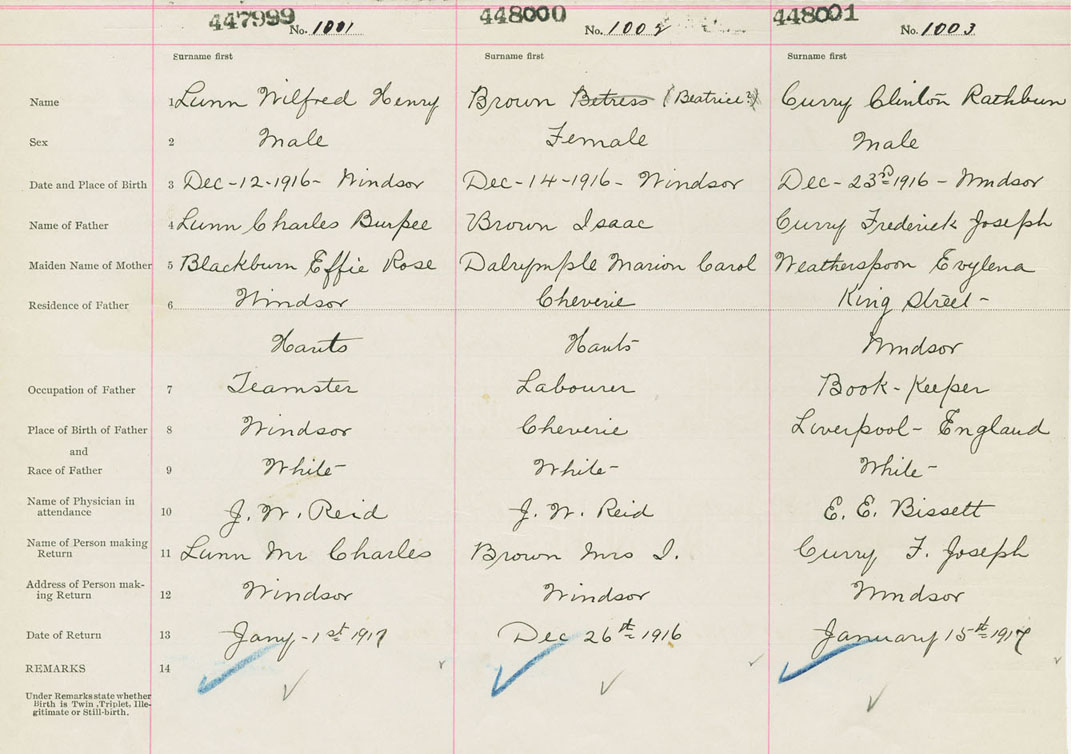 447999 448000 448001
No. 1001 No. 1002 No. 1003
Surname first Surname first Surname first
Name 1 Lunn Wilfred Henry Brown Betress (Beatrice?) Curry Clinton Rathbun
Sex 2 Male Female Male
Date and Place of Birth 3 Dec-12-1916- Windsor Dec-14-1916- Windsor Dec-23rd-1916- Windsor
Name of Father 4 Lunn Charles Burpee Brown Isaac Curry Frederick Joseph
Maiden Name of Mother 5 Blackburn Effie Rose Dalrymple Marion Carol Weatherspoon Evylena
Residence of Father 6 Windsor Cheverie King Street-
Hants Hants Windsor
Occupation of Father 7 Teamster Labourer Book-Keeper
Place of Birth of Father 8 Windsor Cheverie Liverpool- England
and
Race of Father 9 White- White- White-
Name of Physician in
attendance 10 J. W. Reid J. W. Reid E. E. Bissett
Name of Person making
Return 11 Lunn Mr Charles Brown Mrs I. Curry F. Joseph
Address of Person mak-
ing Return 12 Windsor Windsor Windsor
Date of Return 13 Jany-1st 1917 Dec 26th 1916 January 15th 1917
REMARKS 14
Under Remarks state whether
Birth is Twin, Triplet, Ille-
gitimate or Still-birth.